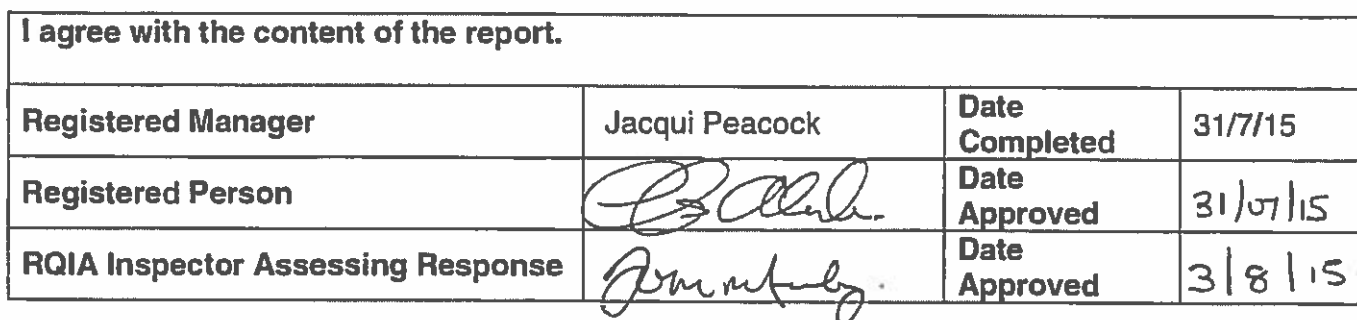 I agree with the content of the report.
Registered Manager Jacqui Peacock Date Completed 31/7/15
Registered Person Date Approved 31/07/15
RQIA Inspector Assessing Response Date Approved 3/8/15